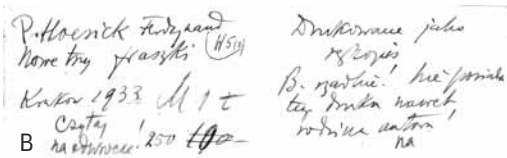 P. Hoesick Ferdynand
Nowe trzy fraszki
Kraków 1933
Czytaj
na odwrocie! 250 100-
B
Drukowane jako
rękopis
B. rzadkie! Nie posiada
tego druku nawet
rodzina autora!
na